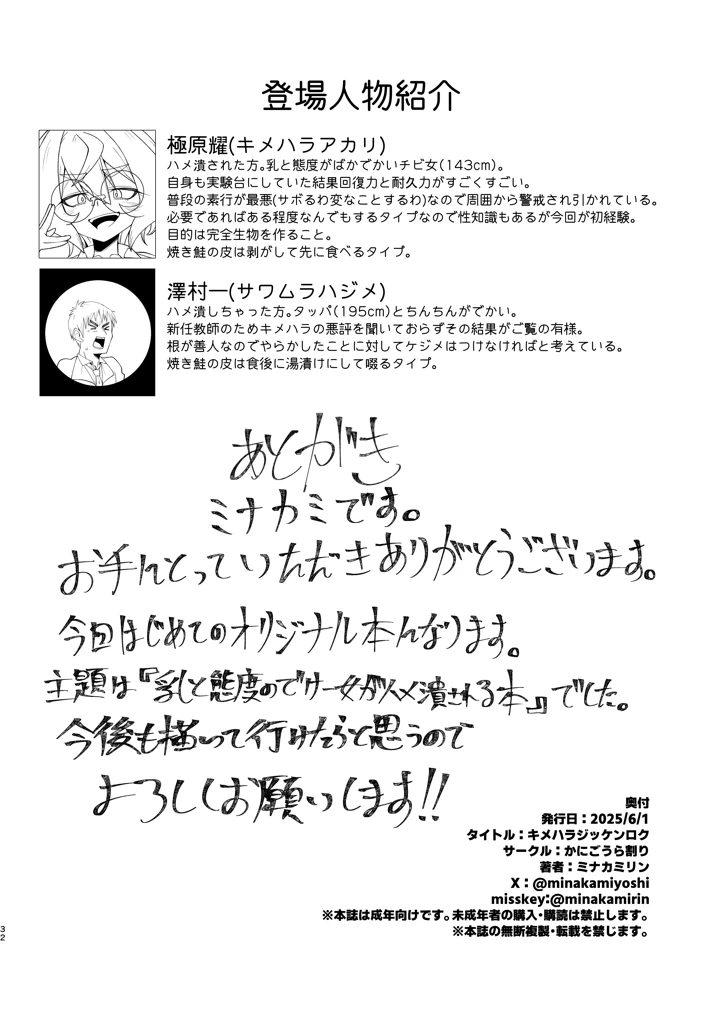 登場人物紹介
極原耀(キメハラアカリ)
ハメ潰された方。乳と態度がばかでかいチビ女(143cm)。
自身も実験台にしていた結果回復力と耐久力がすごくすごい。
普段の素行が最悪(サボるわ変なことするわ)なので周囲から警戒され引かれている。
必要であればある程度なんでもするタイプなので性知識もあるが今回が初経験。
目的は完全生物を作ること。
焼き鮭の皮は剥がして先に食べるタイプ。
澤村一(サワムラハジメ)
ハメ潰しちゃった方。タッパ(195cm)とちんちんがでかい。
新任教師のためキメハラの悪評を聞いておらずその結果がご覧の有様。
根が善人なのでやらかしたことに対してケジメはつけなければと考えている。
焼き鮭の皮は食後に湯漬けにして啜るタイプ。
あとがき
ミナカミです。
お手にとっていただきありがとうございます。
今回はじめてのオリジナル本になります。
主題は『乳と態度のでけー女がハメ潰される本』でした。
今後も描いて行けたらと思うので
よろしくお願いします!!
奥付
発行日:2025/6/1
タイトル:キメハラジッケンロク
サークル:かにごうら割り
著者:ミナカミリン
X:@minakamiyoshi
misskey:@minakamirin
※本誌は成年向けです。未成年者の購入・購読は禁止します。
※本誌の無断複製・転載を禁じます。
32